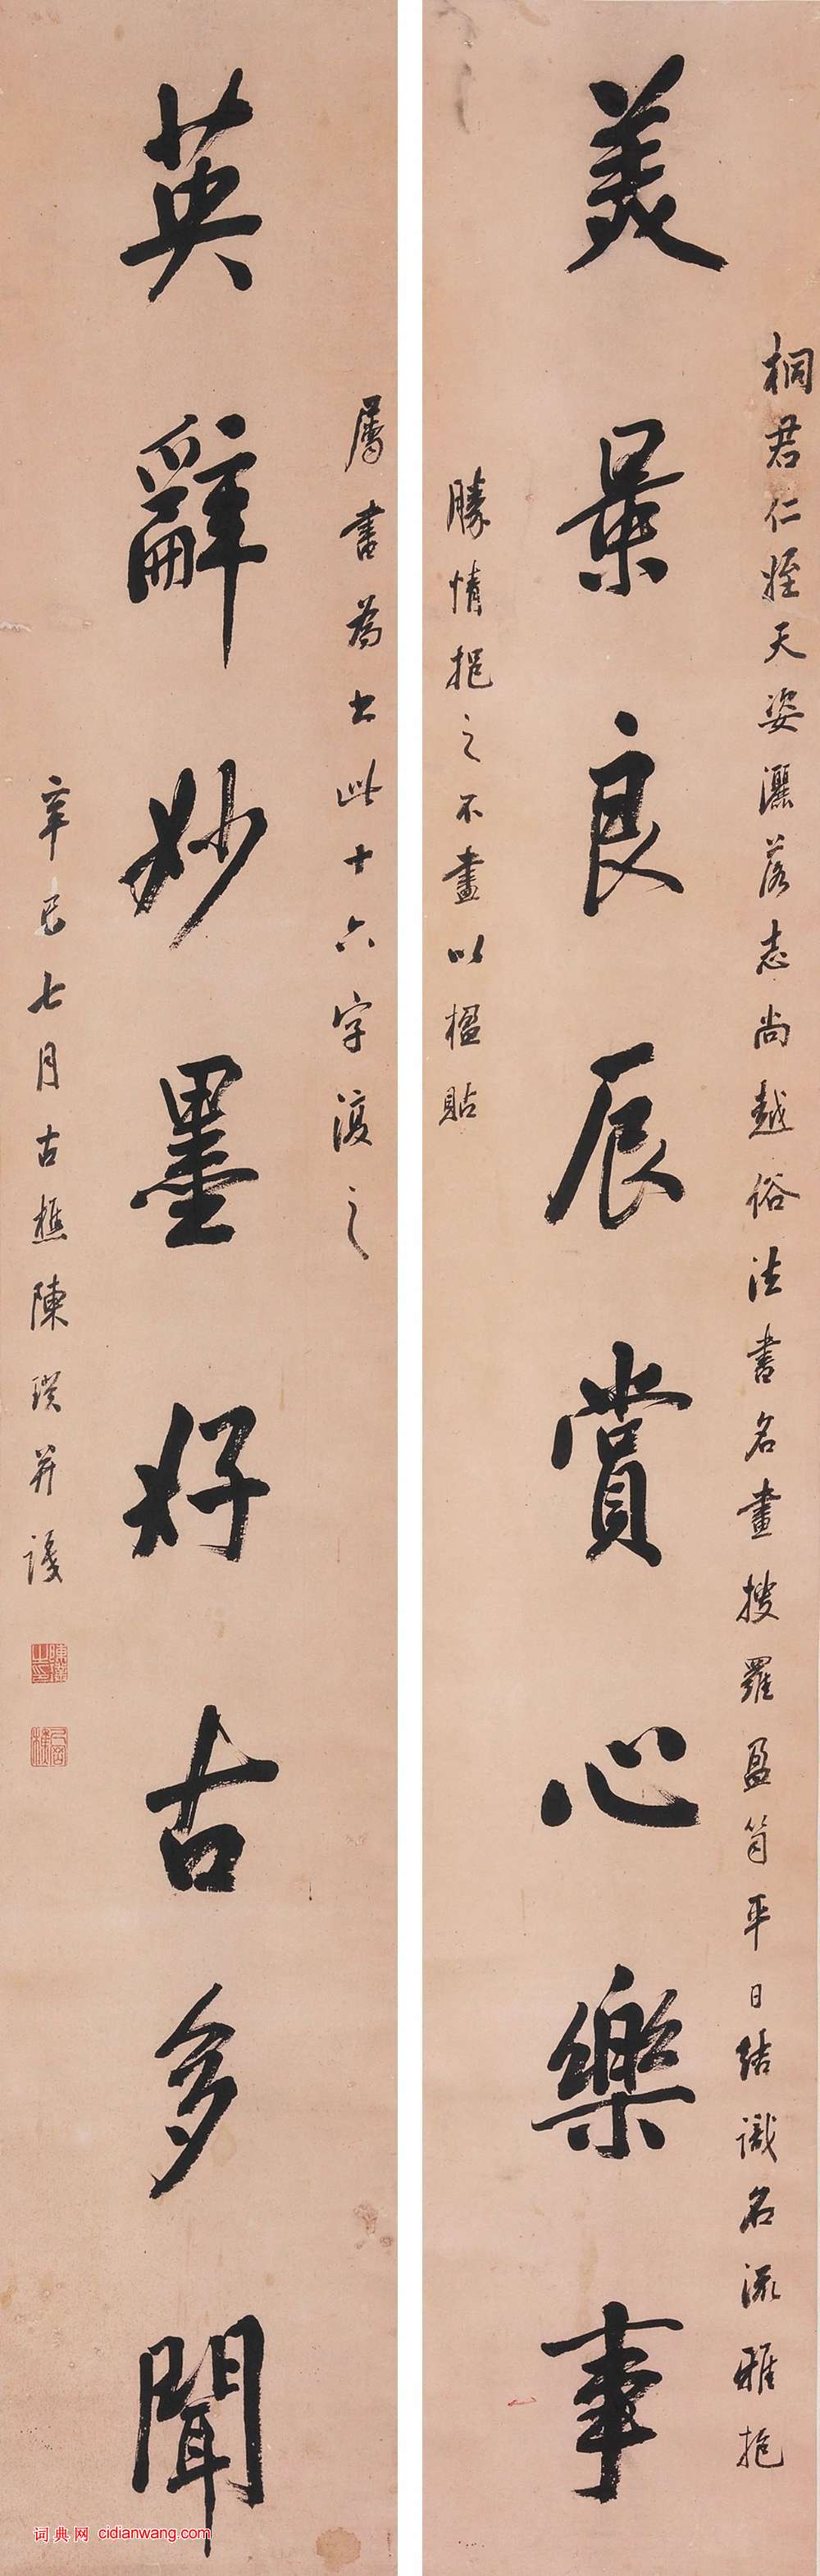 桐君仁姪天姿灑落志尚越俗法書名畫搜羅盈笥平日結識名流雅抱
美景良辰賞心樂事
勝情挹之不盡以楹貼
屬書為書此十六字復之
英辭妙墨好古多聞
辛巳七月古樵陳璞并識
词典网 cidianwang.com